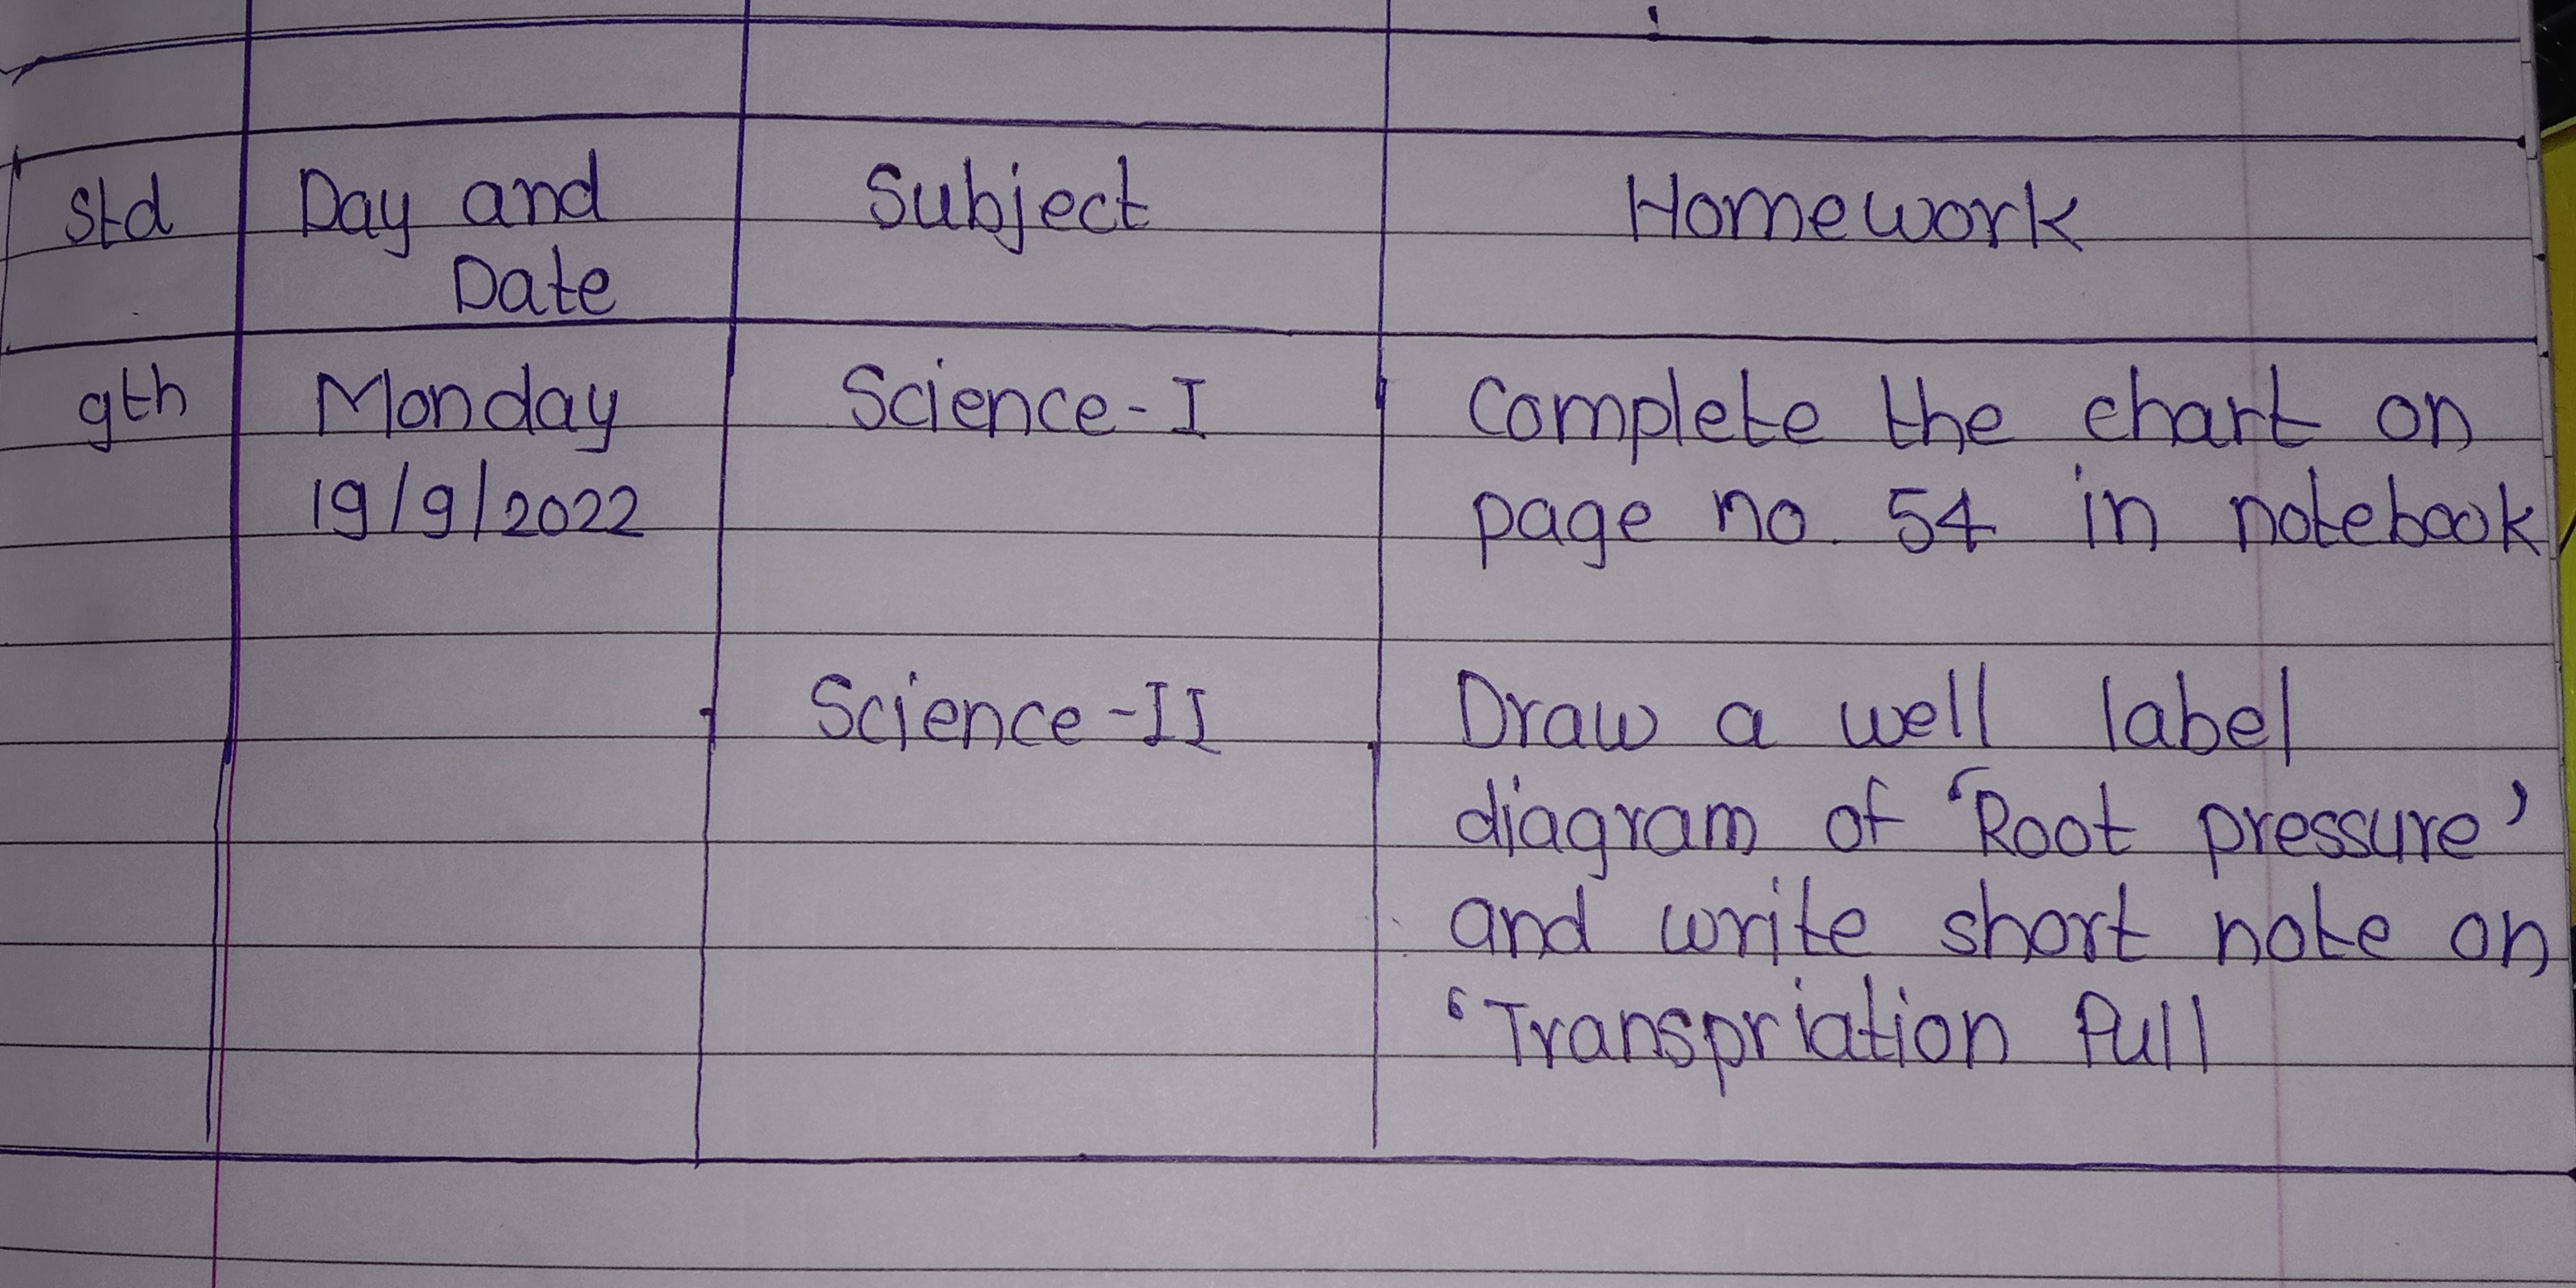 Std Day and Subject Homework
Date
9th Monday Science-I Complete the chart on
19/9/2022 page no. 54 in notebook
Science-II Draw a well label
diagram of 'Root pressure'
and write short note on
'Transpriation Pull